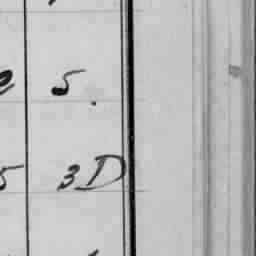 e 5.
5 3D